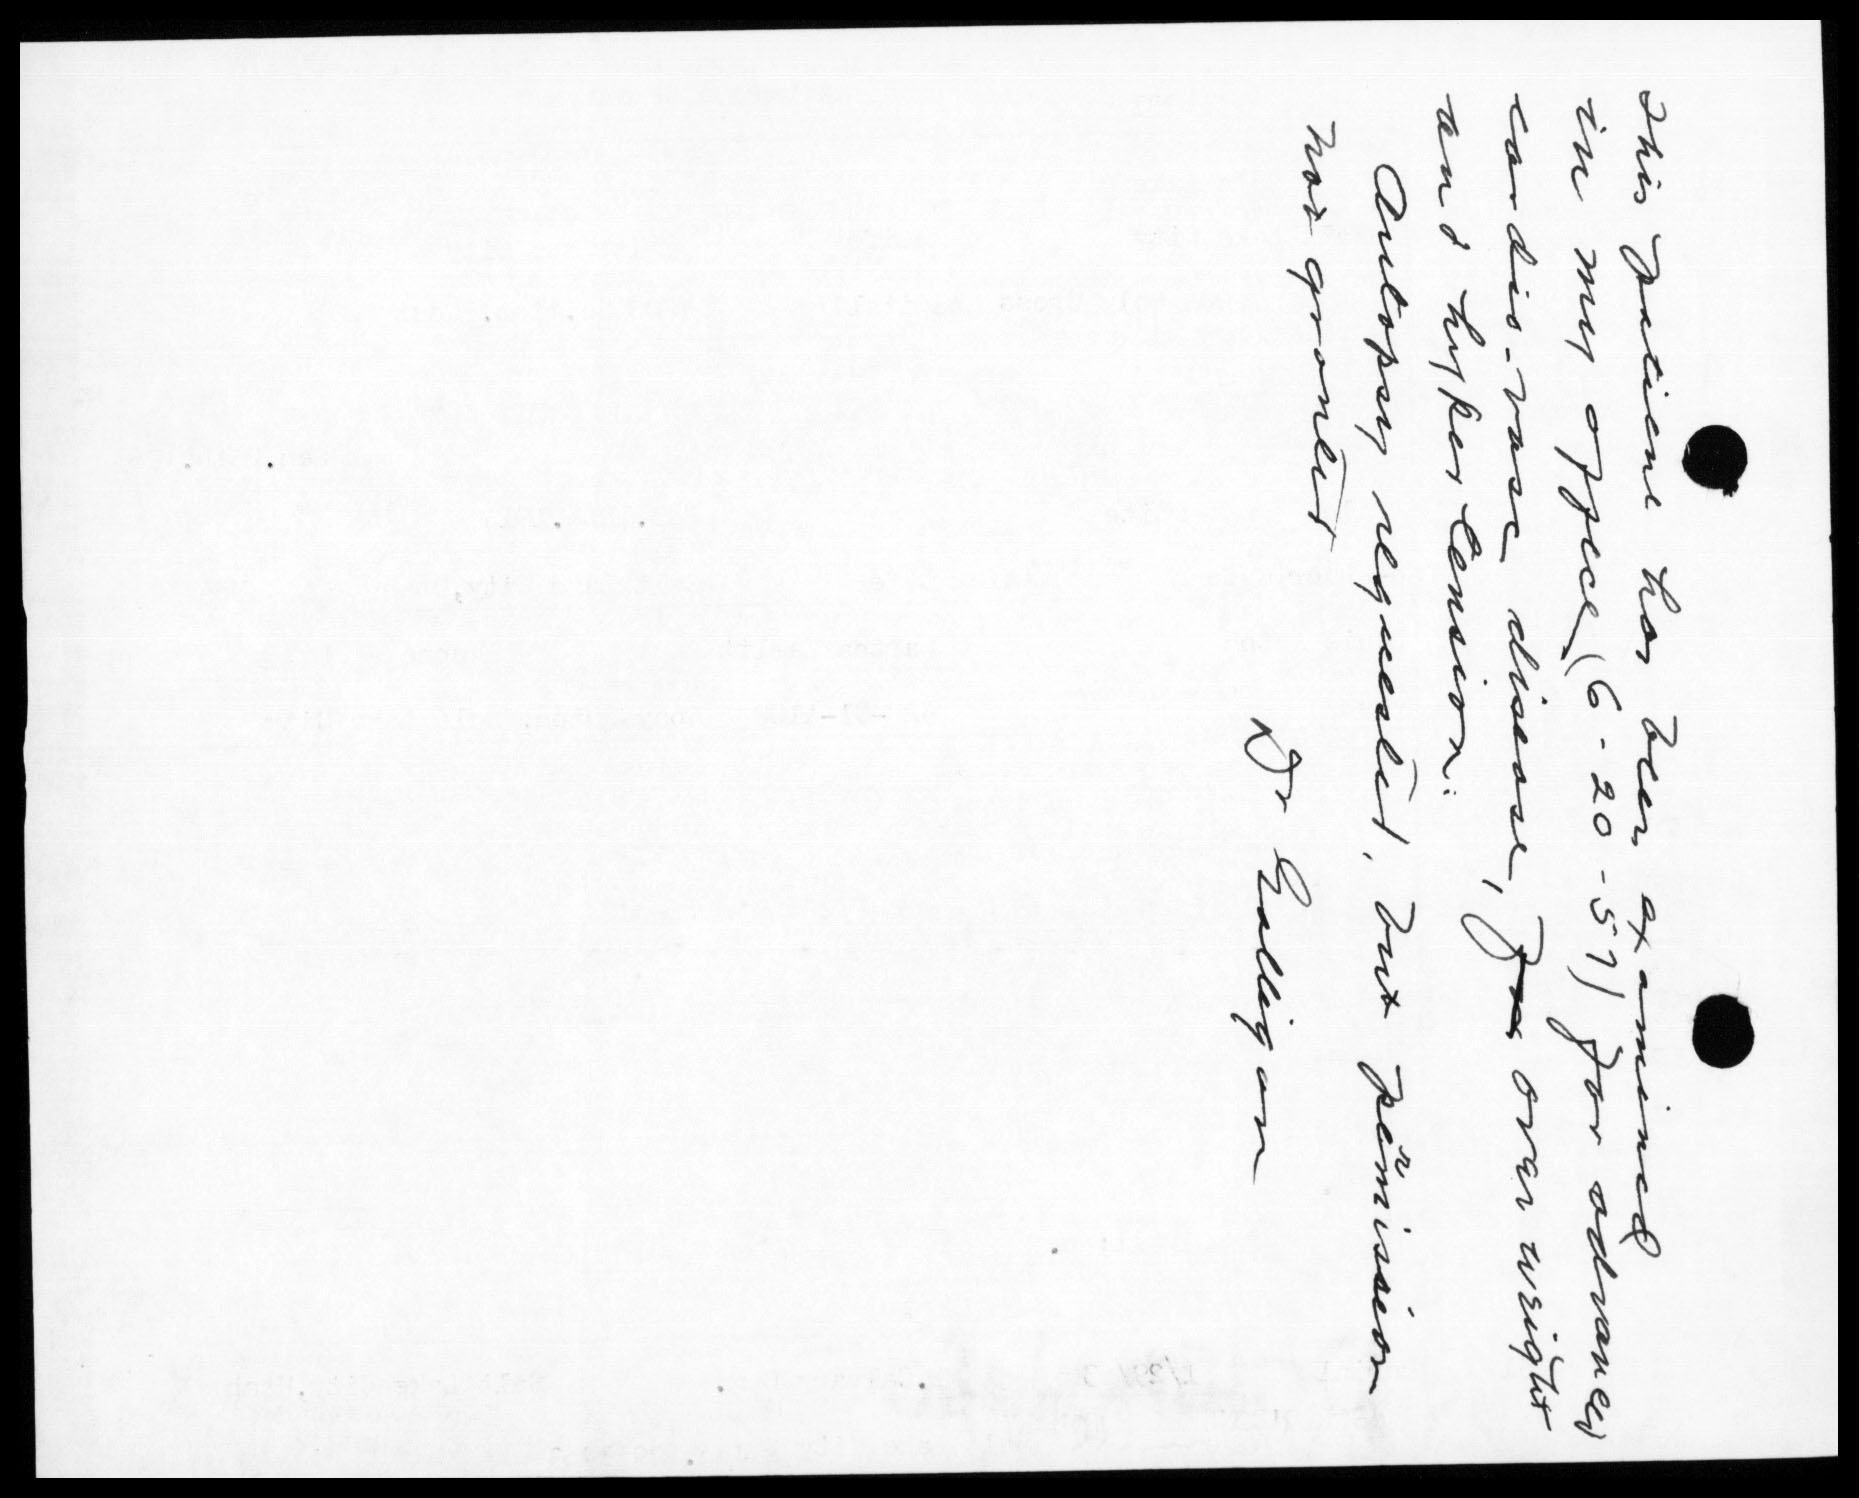 This patient has been examined
in my office (6-20-57) for advanced
cardio-vasc disease, for over weight
and hypertension.
Autopsy requested, but permission
not granted
Dr Galligan